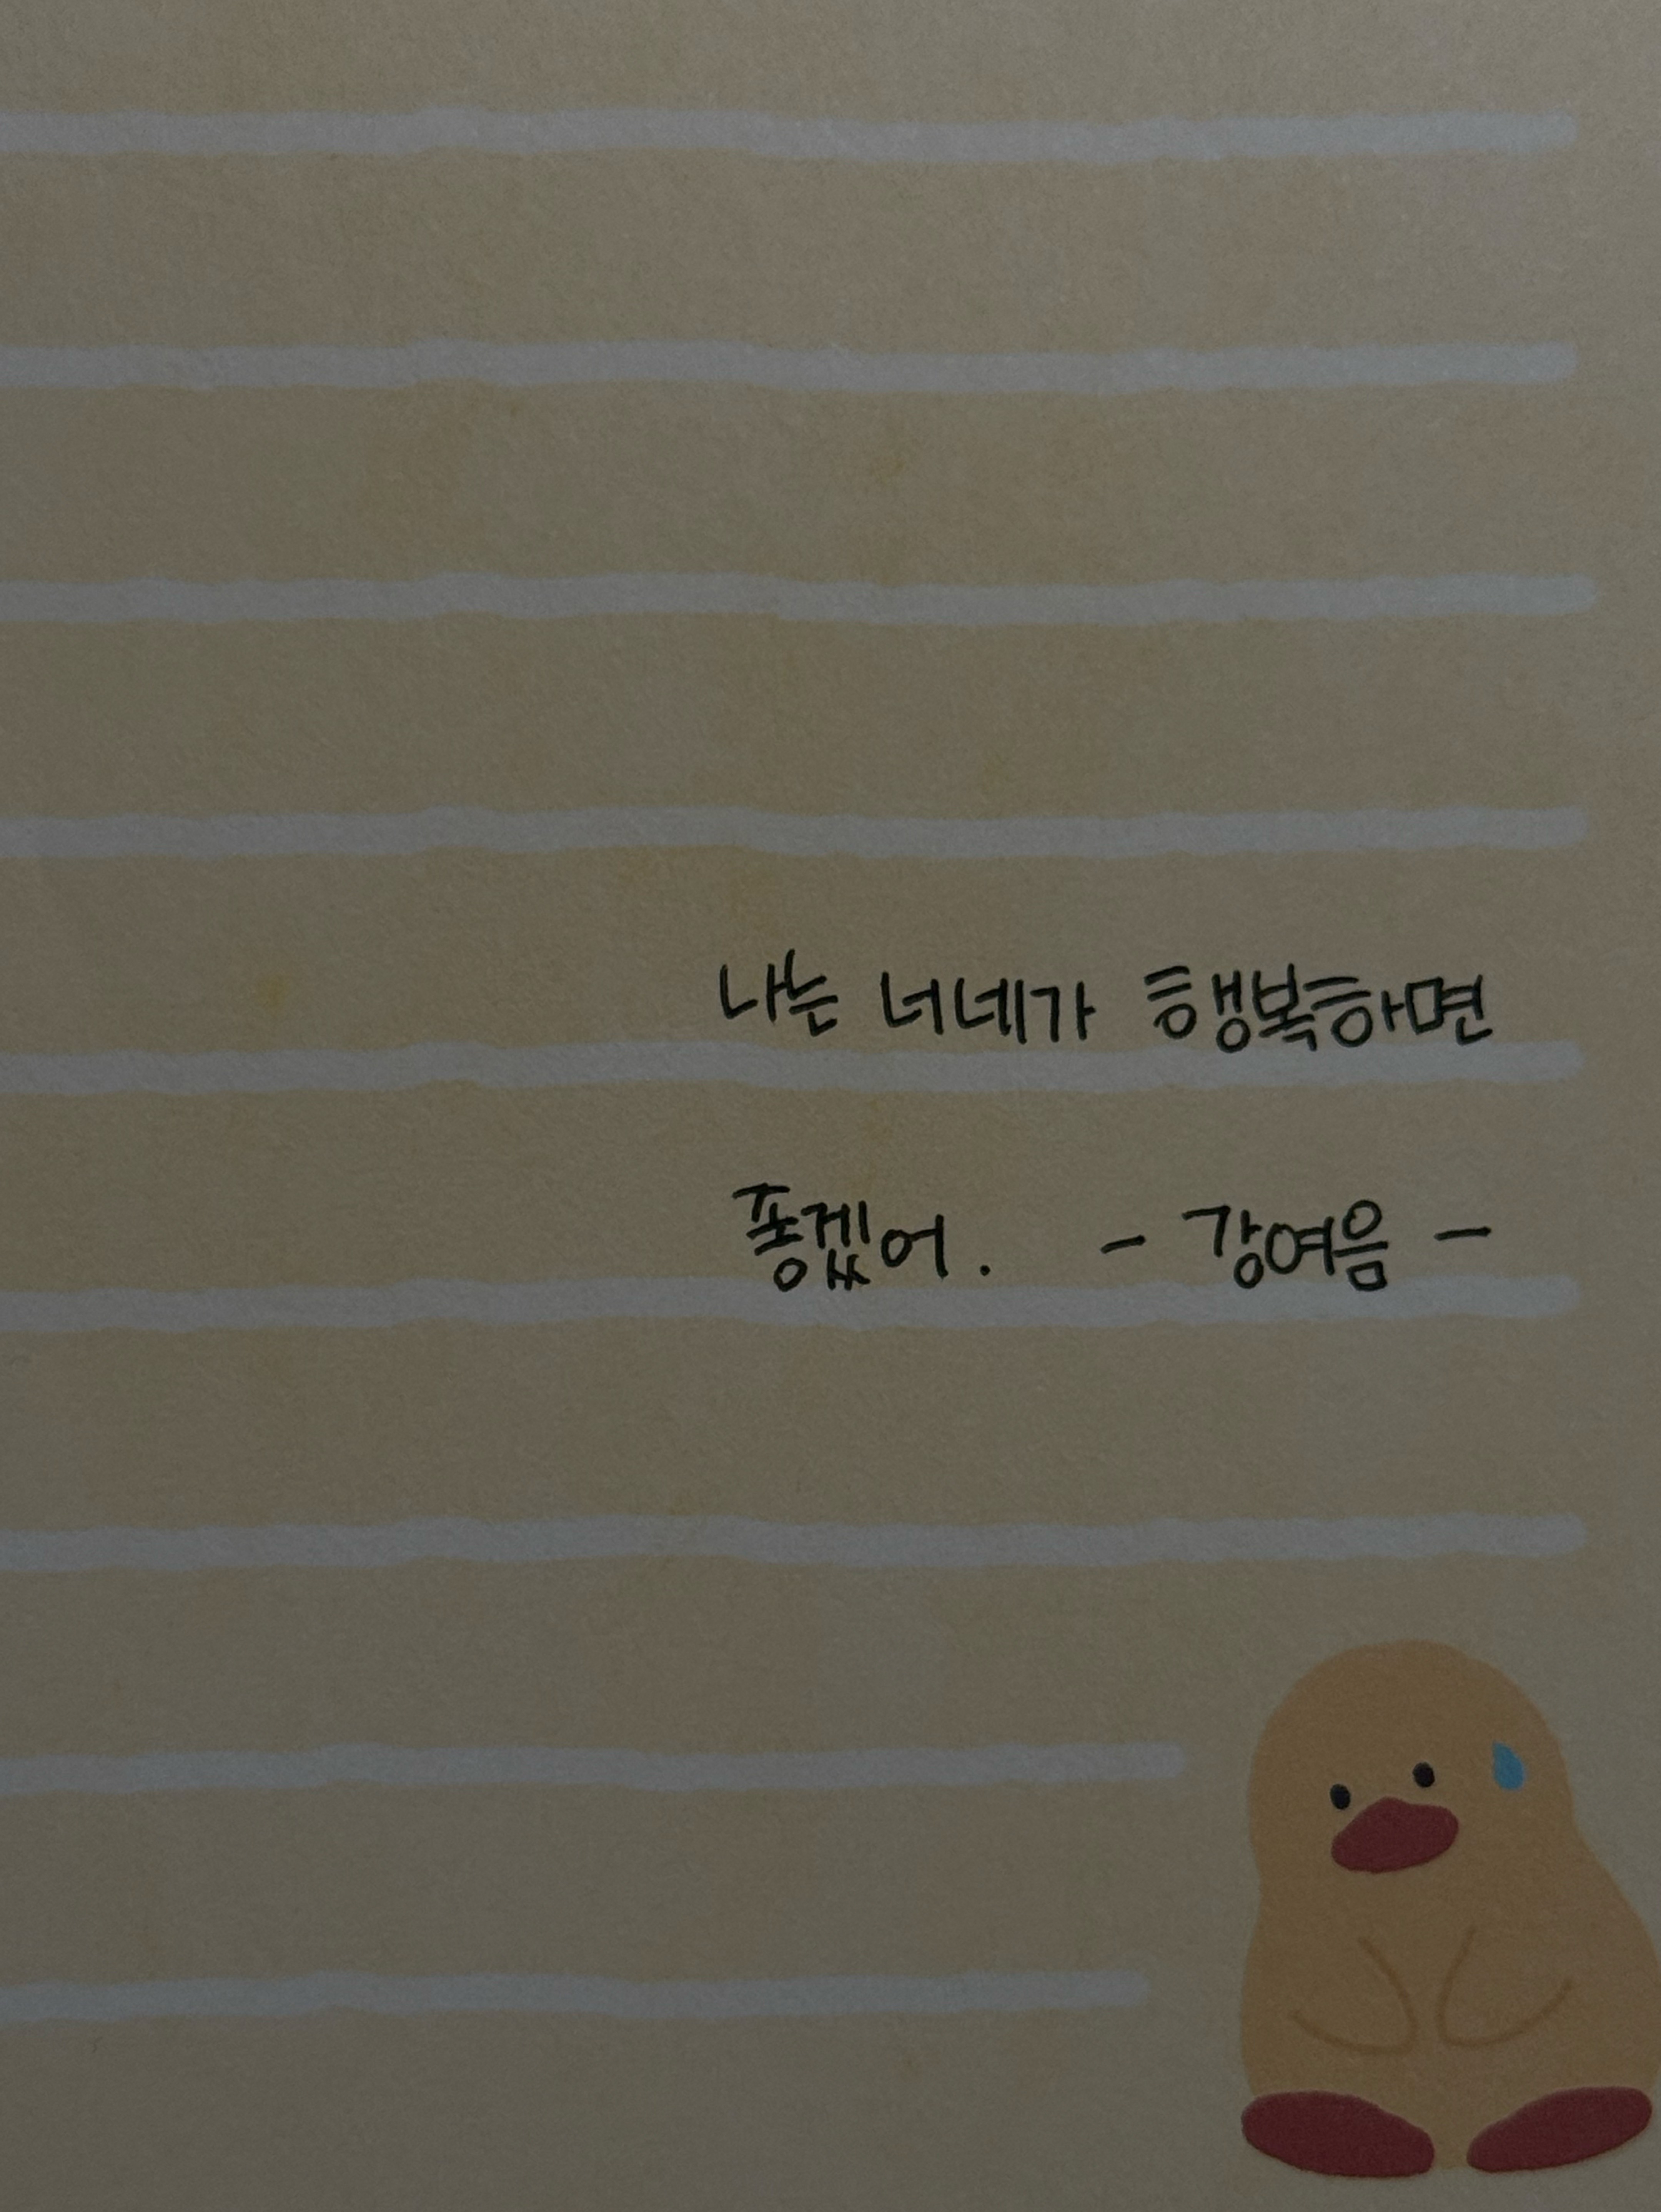 나는 너네가 행복하면
좋겠어. - 강여음 -